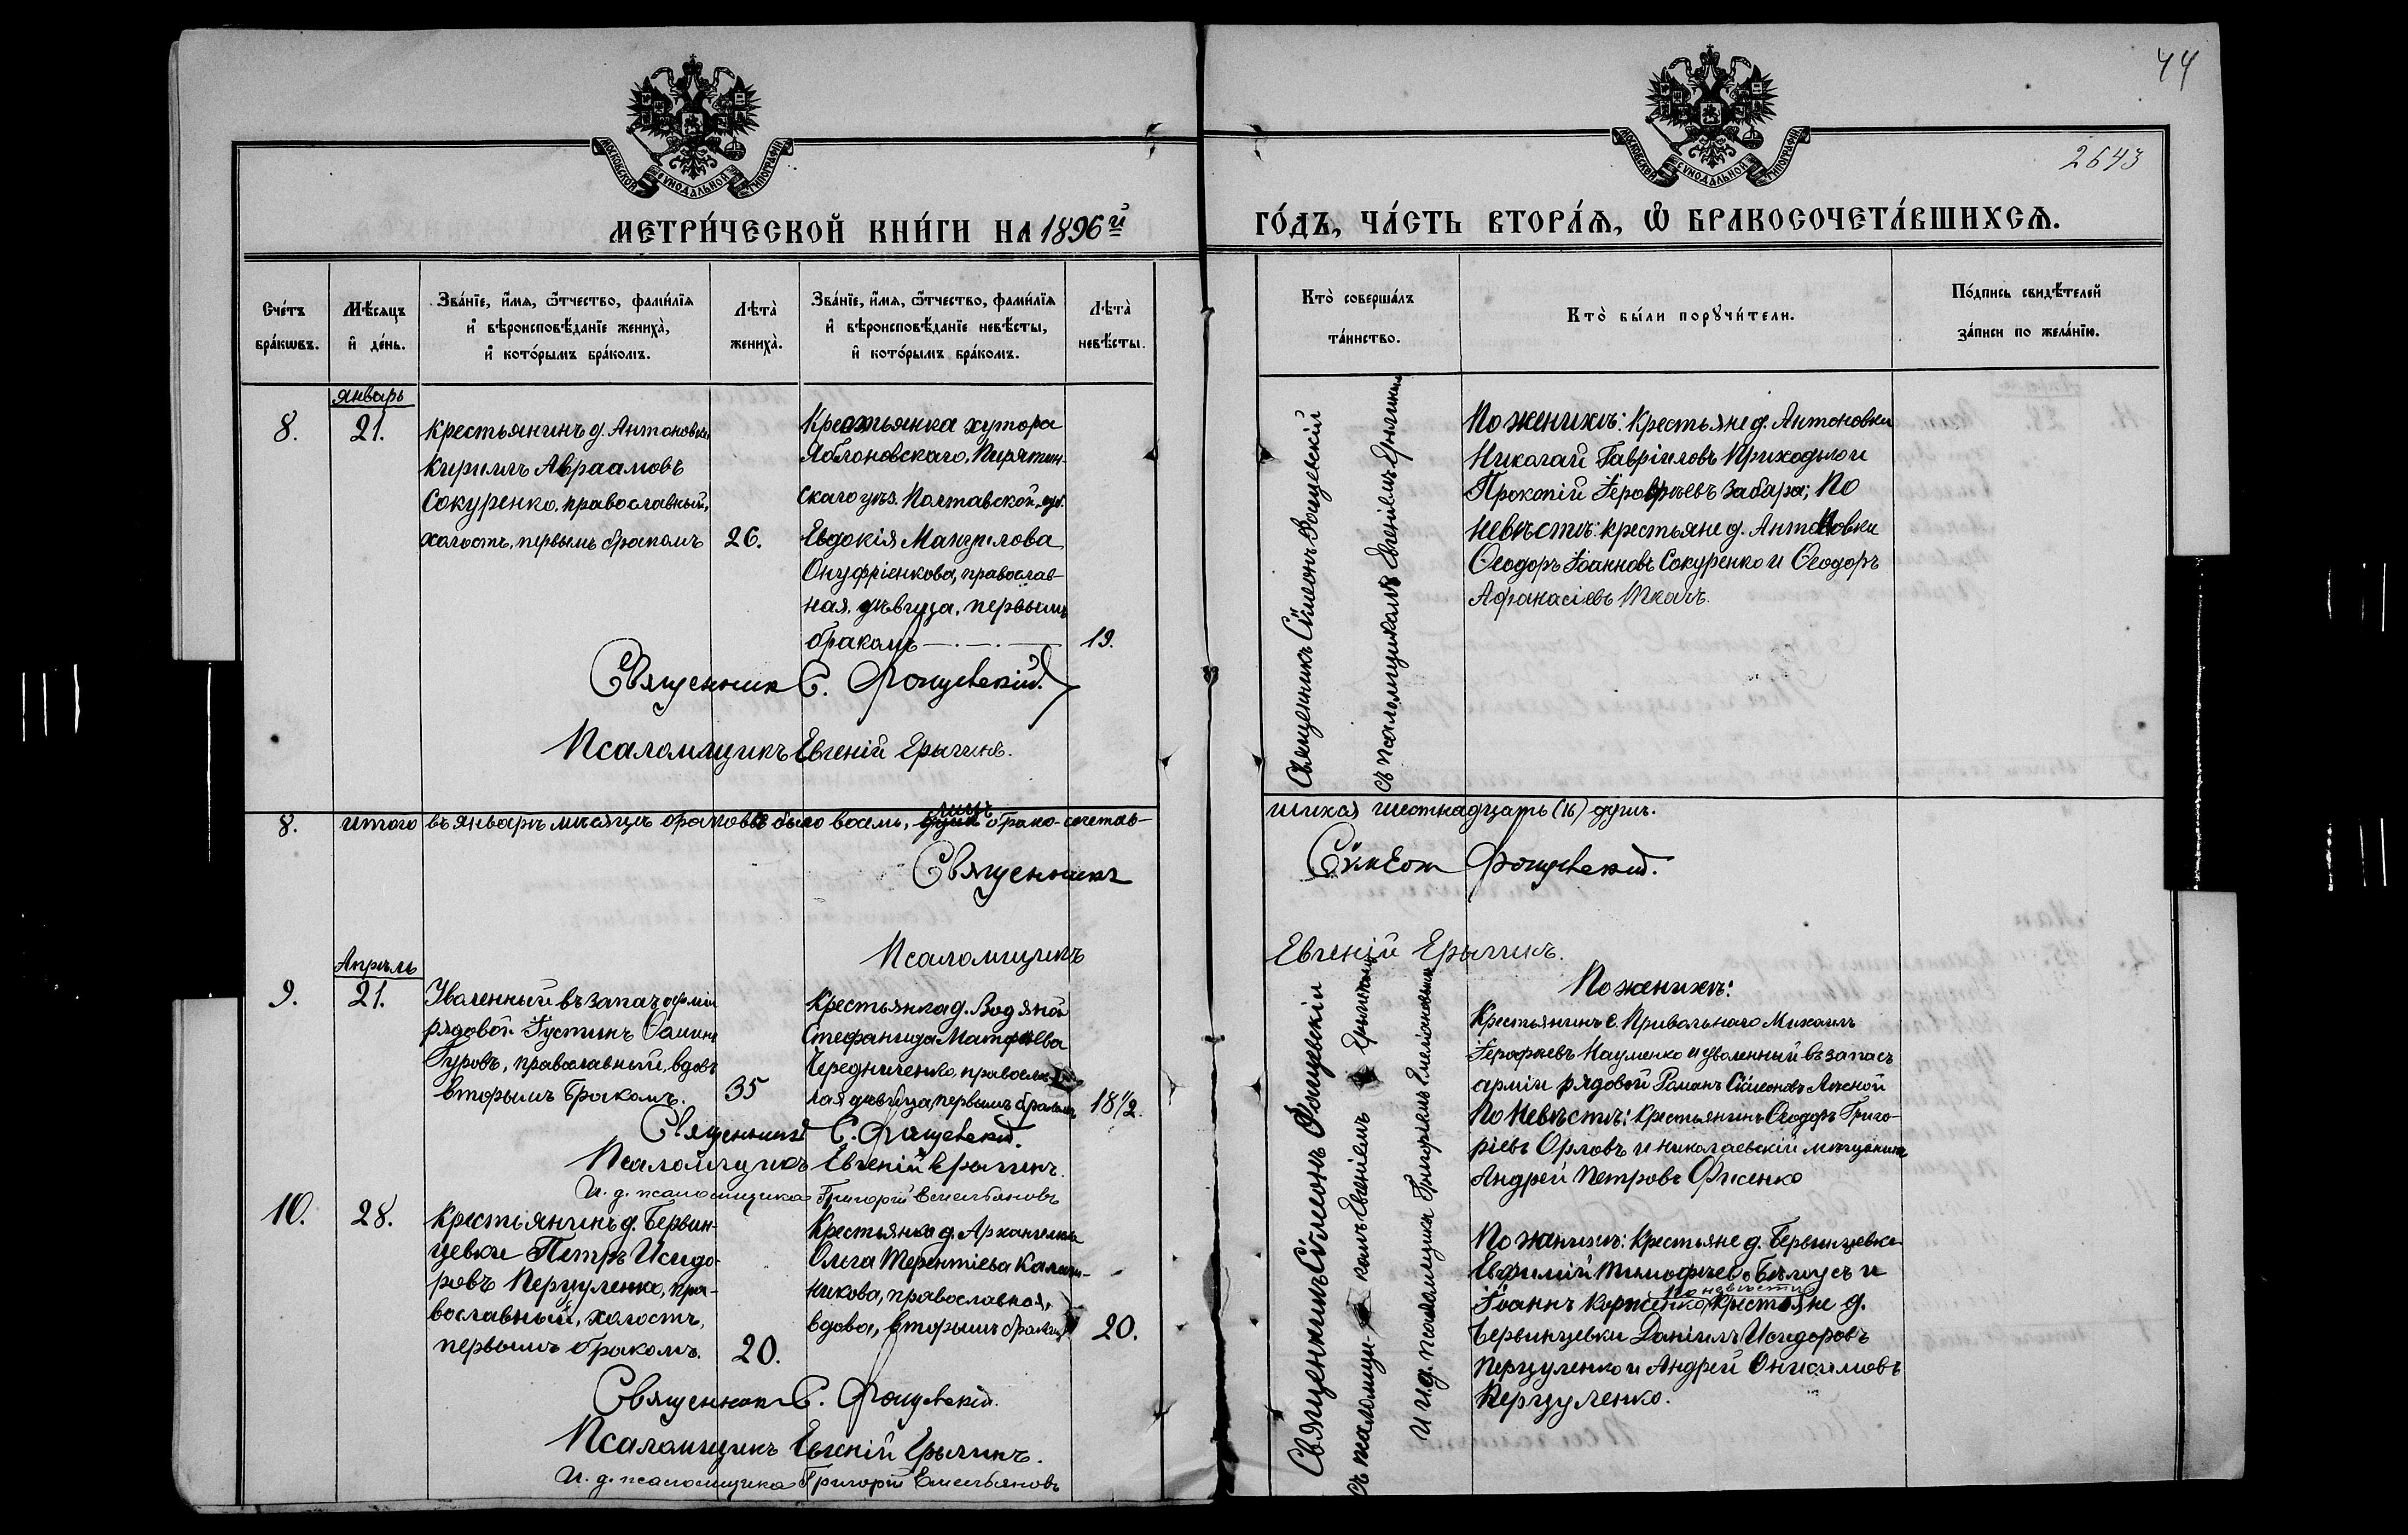 44
2643
МОСКОВСКОЙ СѴНОДАЛЬНОЙ ТИПОГРАФІИ
МОСКОВСКОЙ СѴНОДАЛЬНОЙ ТИПОГРАФІИ
МЕТРИ́ЧЕСКОЙ КНИ́ГИ НА 1896й ГО́ДЪ, ЧА́СТЬ ВТОРА́Ѧ, Ѽ БРАКОСОЧЕТА́ВШИХСѦ.
Сче́тъ
бра́кѡвъ.
Мѣ́сяцъ
и҆ де́нь.
Зва́нїе, и҆́мѧ, ѻ҆́тчество, фами́лїѧ
и҆ вѣроисповѣ́данїе жениха̀,
и҆ кото́рымъ бра́комъ.
Лѣта̀
жениха̀.
Зва́нїе, и҆́мѧ, ѻ҆́тчество, фами́лїѧ
и҆ вѣроисповѣ́данїе невѣ́сты,
и҆ кото́рымъ бра́комъ.
Лѣта̀
невѣ́сты.
Кто̀ соверша́лъ
та́инство.
Кто̀ бы́ли порꙋчи́тели.
По́дпись свидѣ́телей
за́писи по жела́нїю.
Январь
8.
21.
Крестьянинъ д. Антоновки
Кириллъ Авраамовъ
Сокуренко, православный,
холостъ, первымъ бракомъ
26.
Крестьянка хутора
Яблоновскаго, Пирятин-
скаго уѣз. Полтавской губ.
Евдокія Мануилова
Онуфріенкова, православ-
ная, дѣвица, первымъ
бракомъ
19.
Священникъ Сѵмеонъ
съ псаломщикомъ Евгеніемъ
По женихѣ: Крестьяне д. Антоновки
Николай Гавріиловъ Приходько и
Прокопій Забара; По
невѣстѣ: крестьяне д. Антоновки
Ѳеодоръ Іоанновъ Сокуренко и Ѳеодоръ
Афанасіевъ Ткачъ.
Священникъ С.
Псаломщикъ Евгеній
8.
итого въ январѣ мѣсяцѣ браковъ было восемь, лицъ брако-сочетав-
шихся шестнадцать (16) душъ.
Священникъ Сѵмеонъ
Псаломщикъ Евгеній
Апрѣль
9.
21.
Уволенный въ запасъ арміи
рядовой Іустинъ Ѳоминъ
Гуровъ, православный, вдовъ
вторымъ бракомъ.
35
Крестьянка д. Водяной
Стефанида Матфеева
Чередниченко, православ-
ная дѣвица, первымъ бракомъ
18 1/2.
Священникъ Сѵмеонъ
съ псаломщи- комъ Евгеніемъ
и и.д. псаломщика Григоріемъ Емеліановымъ
По женихѣ:
Крестьянинъ с. Привольнаго Михаилъ
Науменко и уволенный въ запасъ
арміи рядовой Романъ Сѵмеоновъ
По Невѣстѣ: Крестьянинъ Ѳеодоръ Григо-
ріевъ Орловъ и николаевскій мѣщанинъ
Андрей Петровъ Фисенко
Священникъ С.
Псаломщикъ Евгеній
И. д. псаломщика Григорій Емельяновъ
10.
28.
Крестьянинъ д. Бервин-
цевки Петръ Исидо-
ровъ Перцуленко, пра-
вославный, холостъ,
первымъ бракомъ.
20.
Крестьянка д.
Ольга Терентіева
православная,
вдова, вторымъ бракомъ
20.
По женихѣ: Крестьяне д. Бервинцевки
Евфимій Тимофѣевъ Бѣлоусъ и
Іоаннъ По невѣстѣ крестьяне д.
Бервинцевки Даніилъ Исидоровъ
Перцуленко и Андрей Онисимовъ
Перцуленко.
Священникъ С.
Псаломщикъ Евгеній
И. д. псаломщика Григорій Емельяновъ